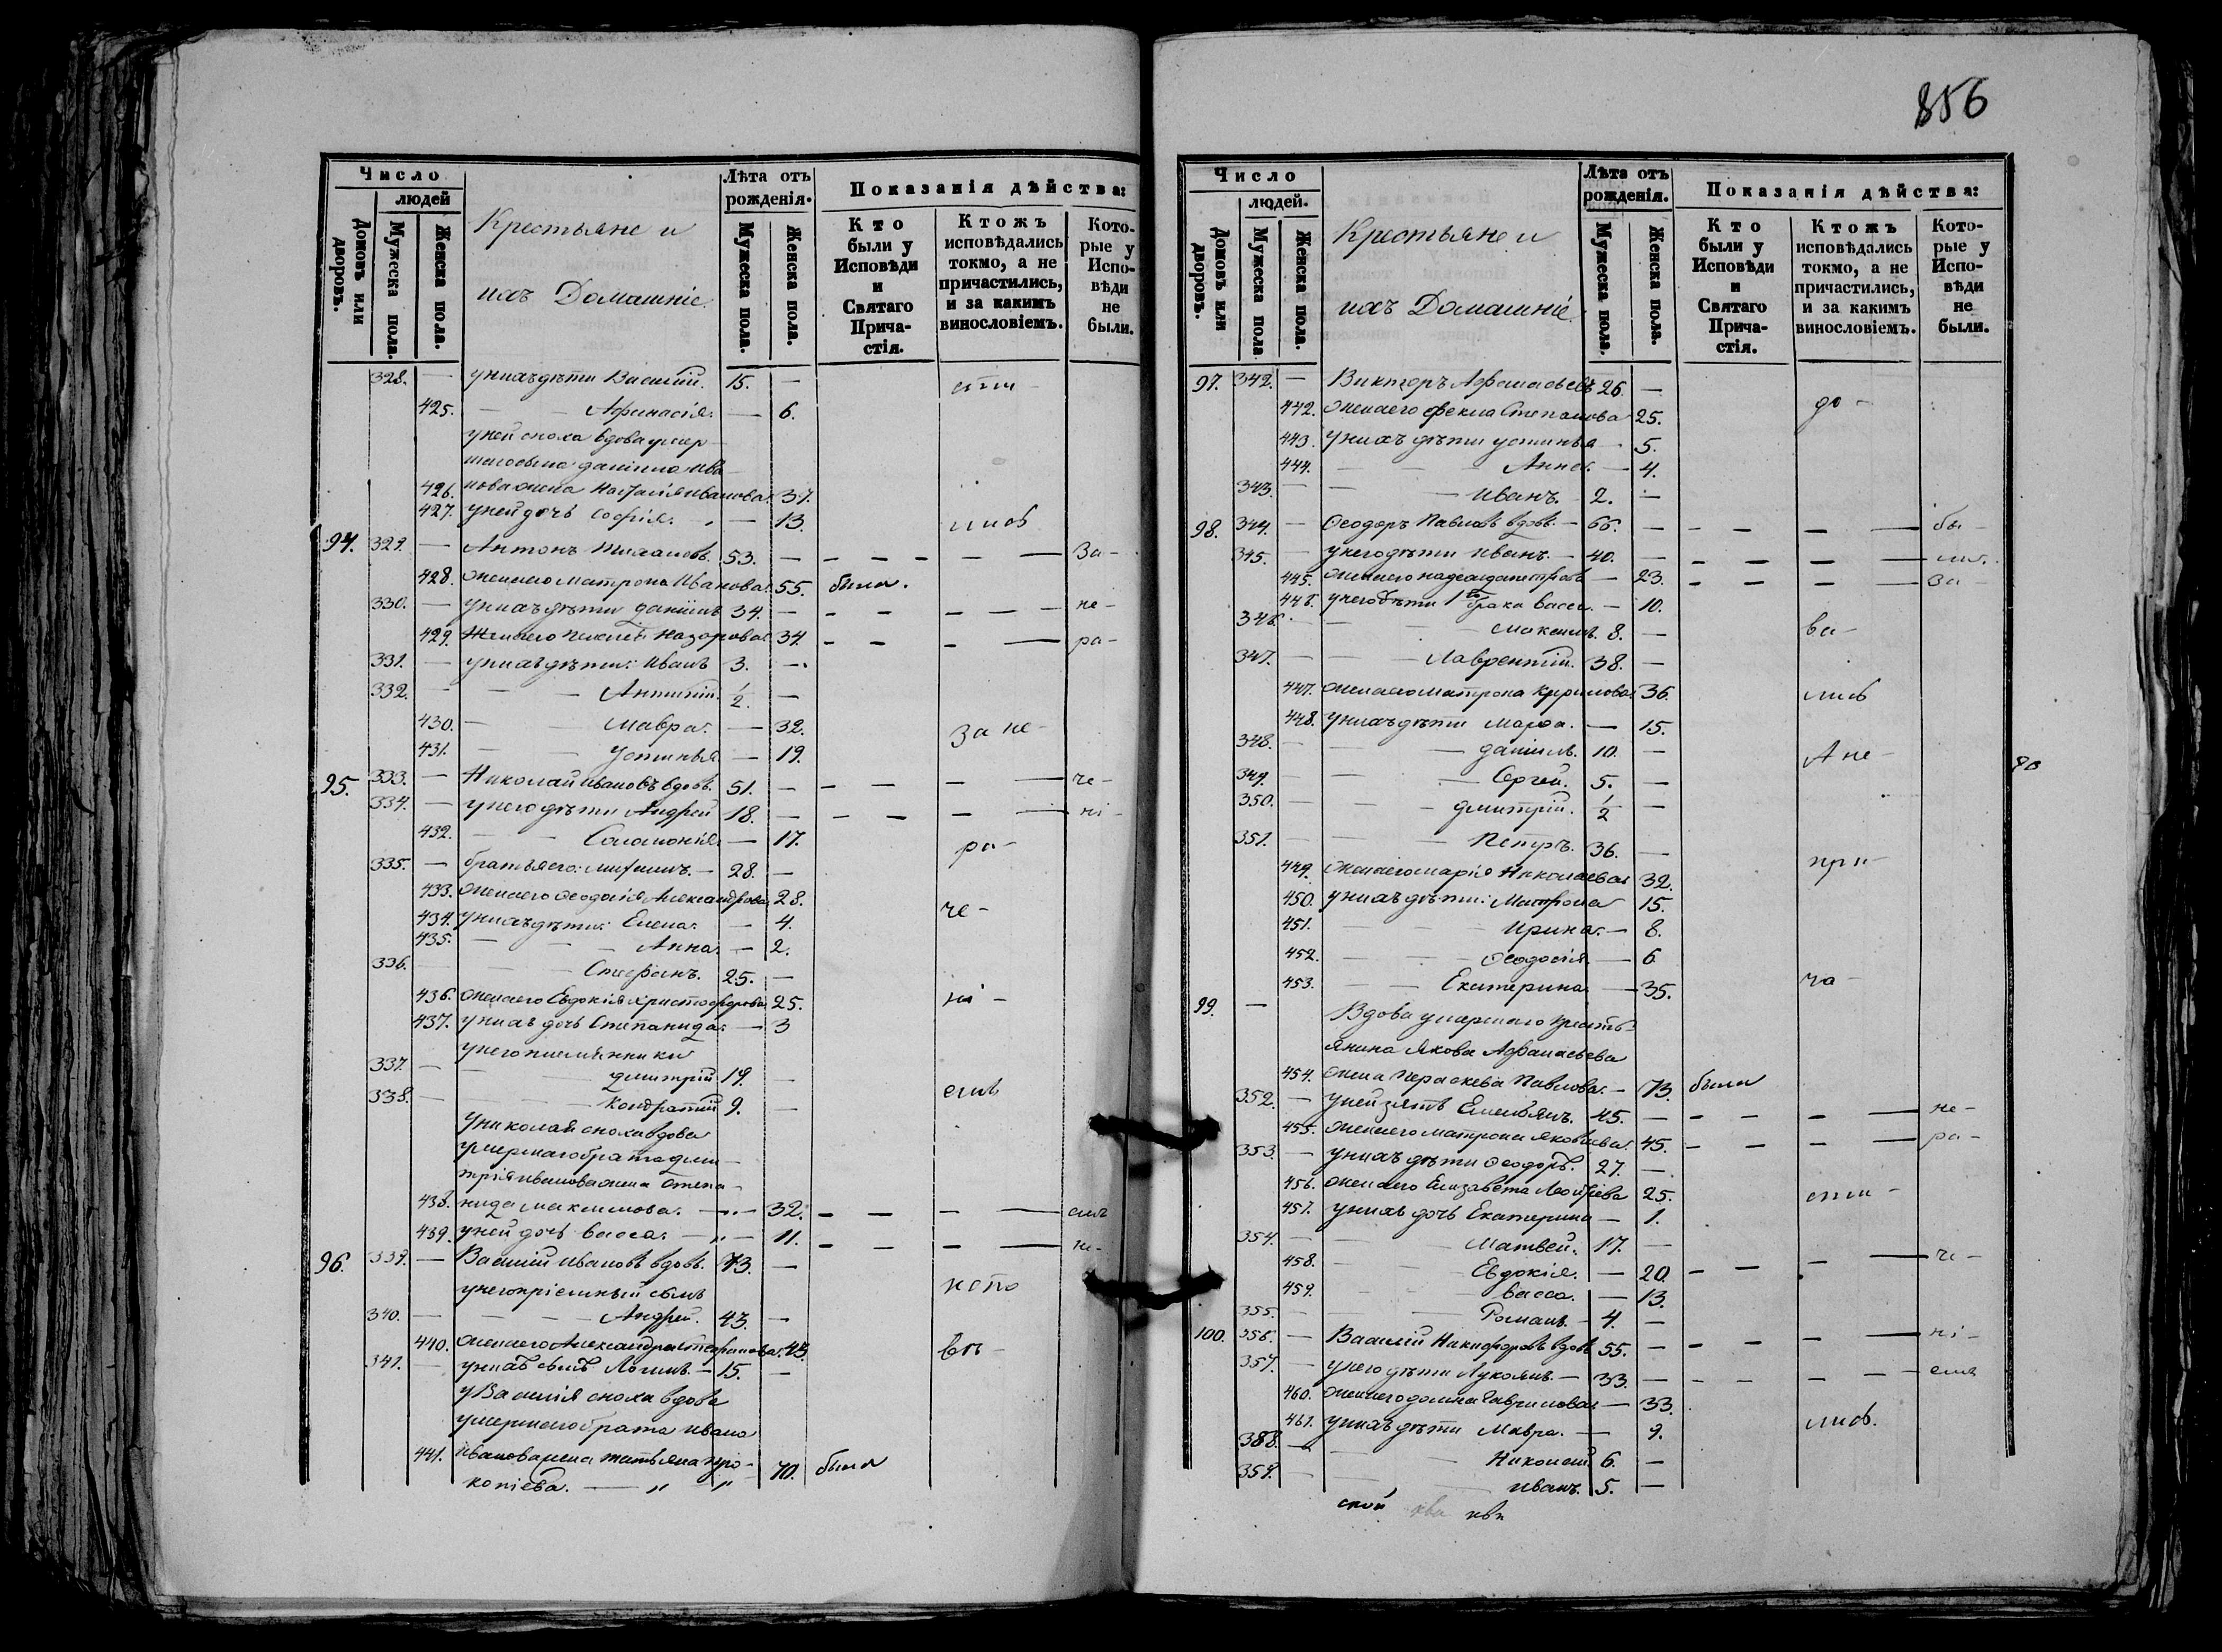 856
Число
людей
Домовъ или дворовъ.
Мужеска пола.
Женска пола.
Крестьяне и
ихъ Домашніе
Лѣта отъ рожденія.
Мужеска пола.
Женска пола.
Показанія дѣйства:
Кто были у Исповѣди и Святаго Причастія.
Ктожъ исповѣдались токмо, а не причастились, и за какимъ винословіемъ.
Которые у Исповѣди не были.
328. — у нихъ дѣти Василій. 15. —
425. — — Афанасія. — 6.
у ней сноха вдова умер-
шаго сына Даніила Ива-
426. нова жена Наталія Иванова. 37.
427. у ней дочь Софія. — 13.
94. 329. — Антонъ 53. — — — — — — За-
428. жена его Матрона Иванова. 55. была.
330. — у нихъ дѣти Даніилъ 34. — — — — — — не-
429. Жена его Назарова 34 — — — — ра-
331. — у нихъ дѣти: Иванъ 3. —
332. — — — 1/2. —
430. — — Мавра. — 32. за не-
431. — — Устинья — 19.
95. 333. — Николай Ивановъ вдовъ. 51. — — — — — че-
334. — у него дѣти Андрей 18. — — — — — ні-
432. — — Соломонія. — 17. ра-
335. — братья его: — 28. —
433. жена его Феодосія Александрова 28. че-
434. у нихъ дѣти: Елена. — 4.
435. — — — Анна. — 2.
336. — — — Стефанъ. 25. —
436. жена его Евдокія Христофорова 25. ні-
437. у нихъ дочь Степанида. — 3
у него племянники
337. — — — Дмитрій 19. —
емъ
338. — — — Кондратій 9. —
у Николая сноха вдова
умершаго брата Дми-
трія Иванова жена Степа-
438. нида Максимова. — „ — 32. — — — — емъ
439. у ней дочь Васса. — „ — 11. — — — — не-
96. 339. — Василій Ивановъ вдовъ. 73. —
у него пріемный сынъ
340. — — — Андрей. 43. —
440. жена его Александра Стефанова. 43.
341. — у нихъ сынъ Логинъ. — 15. —
у Василія сноха вдова
умершаго брата Ивана
441. Иванова жена Татьяна Про- 70. была
копіева. — „ „
Число
людей.
Домовъ или дворовъ.
Мужеска пола
Женска пола.
Крестьяне и
ихъ Домашніе
Лѣта отъ рожденія.
Мужеска пола.
Женска пола.
Показанія дѣйства:
Кто были у Исповѣди и Святаго Причастія.
Ктожъ исповѣдались токмо, а не причастились, и за какимъ винословіемъ.
Которые у Исповѣди не были.
97. 342. — Викторъ Афанасьевъ 26. —
442. жена его Фекла Степанова 25.
443. у нихъ дѣти Устинья — 5.
444. — — — Анна. — 4.
343. — — — Иванъ. 2. —
98. 344. — Феодоръ Павловъ вдовъ. — 66. — — — — — бы-
345. — у него дѣти Иванъ. — 40. — — — — — ли.
445. жена его Надежда — 23. — — — — За-
446. у него дѣти 1го брака Васса. — 10.
346. — — Максимъ. 8. — ва-
347. — — — Лаврентій. 38. —
447. жена его Матрона Кирилова. 36. лись
448. у нихъ дѣти Марѳа. — 15.
348. — — — Даніилъ. 10. — А не-
349. — — — Сергей. 5. —
350. — — — Дмитрій. 1/2 —
351. — — — Петръ. 36. —
при-
449. жена его Марія Николаева 32.
450. у нихъ дѣти: Матрона 15.
451. — — — Ирина. — 8.
452. — — — Феодосія. — 6
453. — — Екатерина — 35. ча-
99. — Вдова умершаго кресть-
янина Якова Афанасьева
454. жена Параскева Павлова. — 73. была
352. — у ней зять Емельянъ. 45. — — — — — не-
455. жена его Матрона Яковлева. 45. — — — — ра-
353. — у нихъ дѣти Феодоръ. 27. —
456. жена его Елизавета 25.
457. у нихъ дочь Екатерина — 1.
354. — — Матвей. 17. —
458. — — Евдокія. — 20. — — — — че-
459. — — Васса. — 13.
355. — — Романъ. — 4. —
100. 356. — Василій Никифоровъ вдовъ 55. — — — — — ні-
357. — у него дѣти Лукоянъ. — 33. — — — — — емъ
460. жена его Домна Гаврилова — 33.
461. у нихъ дѣти Мавра. — 9. лись.
388. — — Николай. 6. —
359. — — Иванъ. 5. —